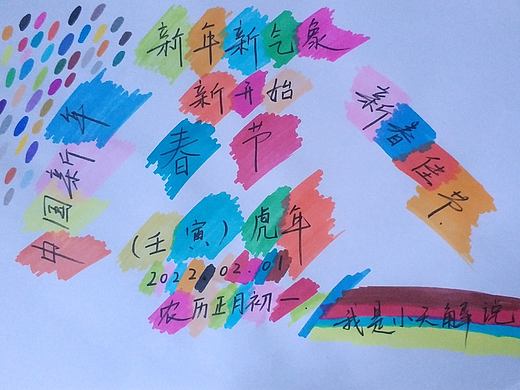 新年新气象
新开始
春节
中国新年
新春佳节
(壬寅)虎年
2022.02.01
农历正月初一
我是小天解说